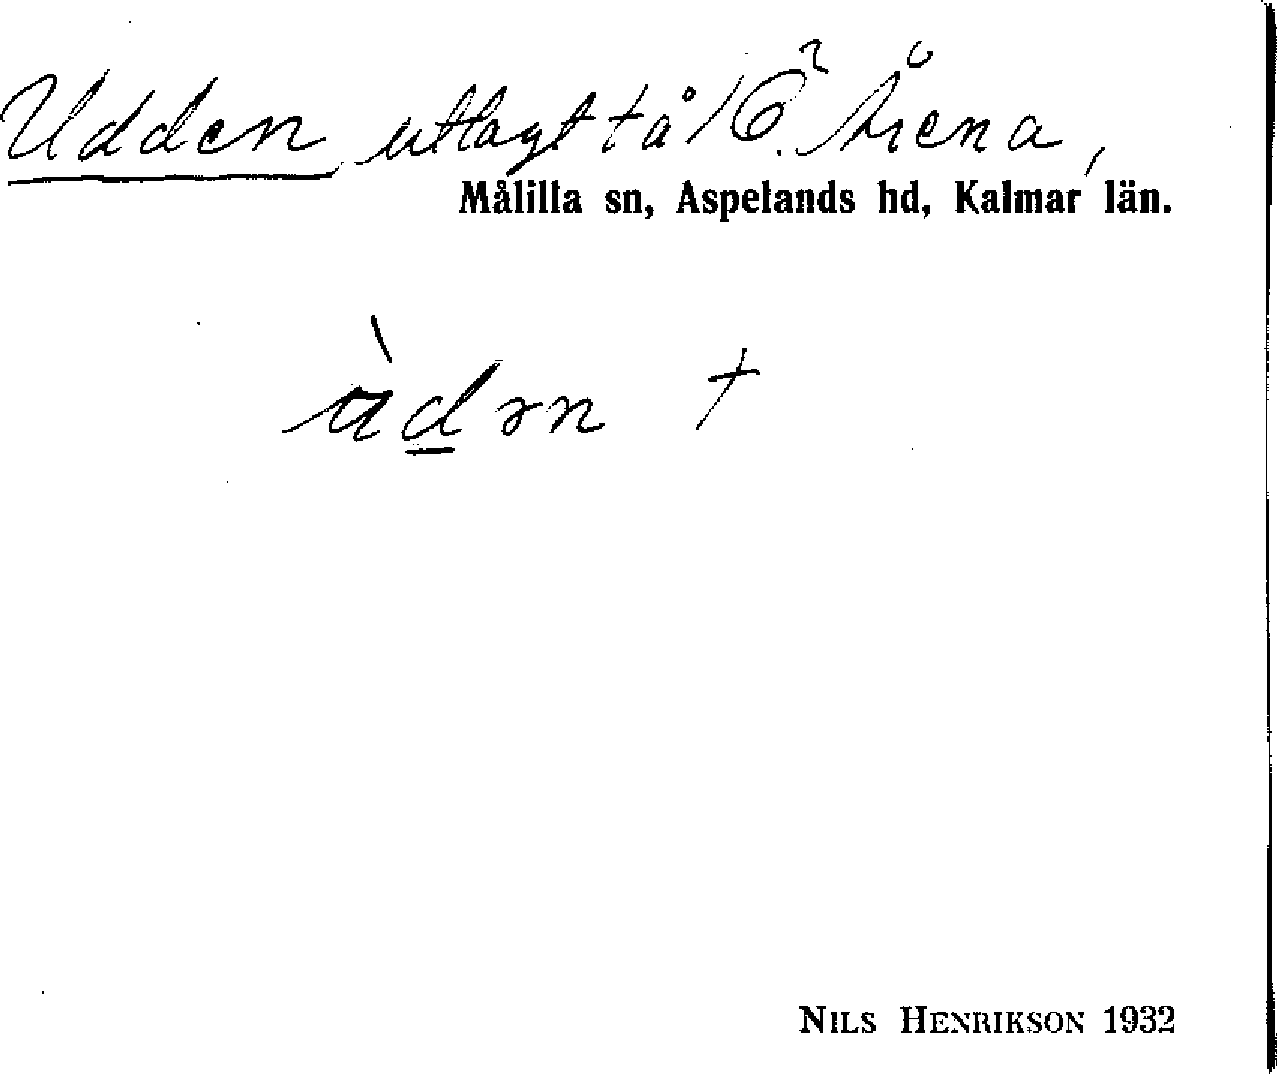 Udden utlagt tå
Målilla sn, Aspelands hd, Kalmar län.
ùdən †
NILS HENRIKSON 1932